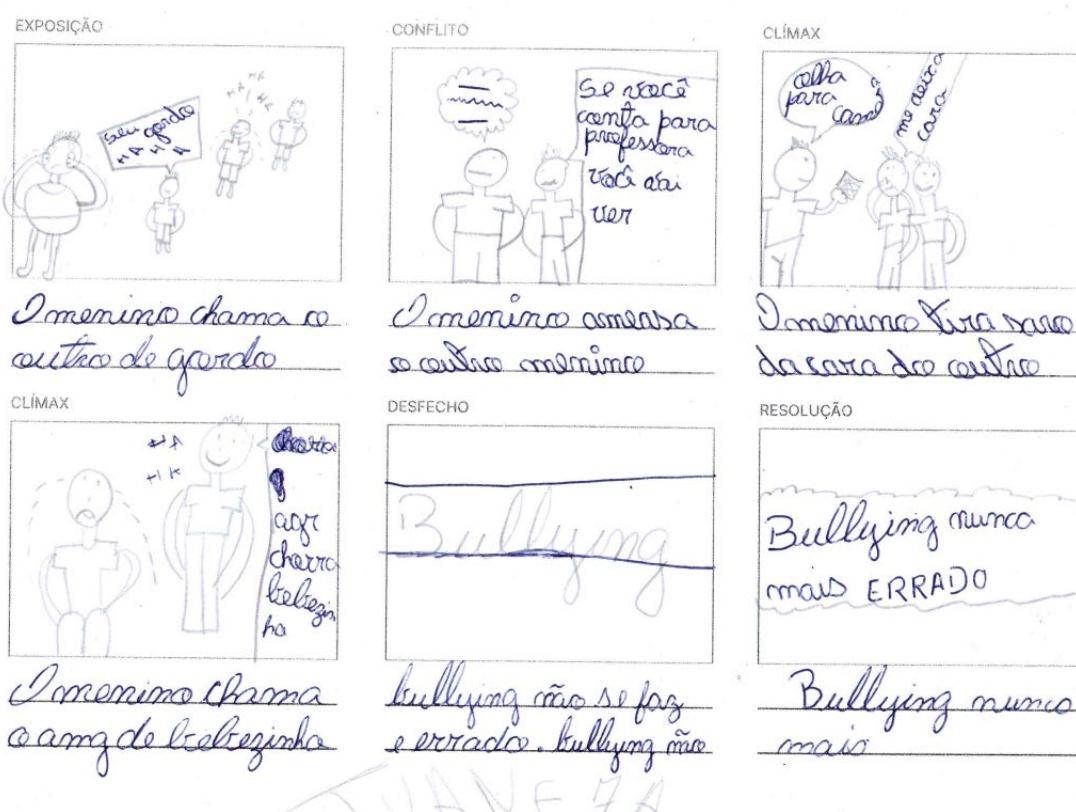 EXPOSIÇÃO
seu gordo
HA H
A
HA HA
HA HA
O menino chama o
outro de gordo
CONFLITO
se você
conta para
professora
você vai
ver
O menino amensa
o outro menino
CLÍMAX
olha
para
me deixa
cara
O menino tira saro
da cara do outro
CLÍMAX
HA
HA
agr
chorra
bebezin
ha
O menino chama
o amg de bebezinho
DESFECHO
Bullying
bullying não se faz
e errado. bullying não
RESOLUÇÃO
Bullying nunca
mais ERRADO
Bullying nunca
mais
7A